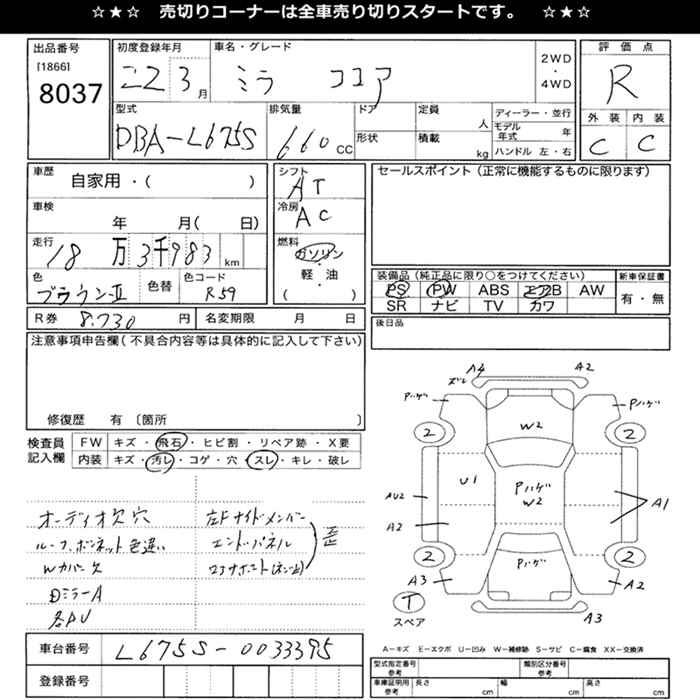 ☆★☆ 売切りコーナーは全車売り切りスタートです。 ☆★☆
出品番号
[1866]
8037
初度登録年月
車名・グレード
2WD
・
4WD
評価点
R
外装 内装
C C
22 3月 ミラ ココア
型式 排気量 ドア 定員 ディーラー・並行
DBA-L675S 660CC 人 モデル年式 年
形状 積載 kg ハンドル 左・右
車歴 自家用・( )
車検 年 月( 日)
走行 18万3千983km
色 色替 色コード
ブラウン-II R59
R券 8.730円 名変期限 月 日
シフト AT
冷房 AC
燃料
ガソリン
・
軽・油
( )
セールスポイント(正常に機能するものに限ります)
装備品(純正品に限り○をつけてください) 新車保証書
PS PW ABS エアB AW 有・無
SR ナビ TV カワ
後日品
注意事項申告欄(不具合内容等は具体的に記入して下さい)
修復歴 有 〔箇所 〕
検査員 FW キズ・飛石・ヒビ割・リペア跡・X要
記入欄 内装 キズ・汚レ・コゲ・穴・スレ・キレ・破レ
オーディオ欠 穴
ルーフ、ボンネット色違い
Wカバー欠
DミラーA
各AU
左Fサイドメンバー
エンドパネル
歪
A4 A2
ズレ
Pハゲ Pハゲ
2 W2 2
U1 Pハゲ
W2
AU2 A1
A2
2 Pハゲ 2
A3 A2
T
スペア A3
車台番号 L675S-0033395
登録番号
A-キズ E-エクボ U-凹み W-補修跡 S-サビ C-腐食 XX-交換済
型式指定番号 参考 類別区分番号 参考
車庫証明用 参考 長さ cm 幅 cm 高さ cm